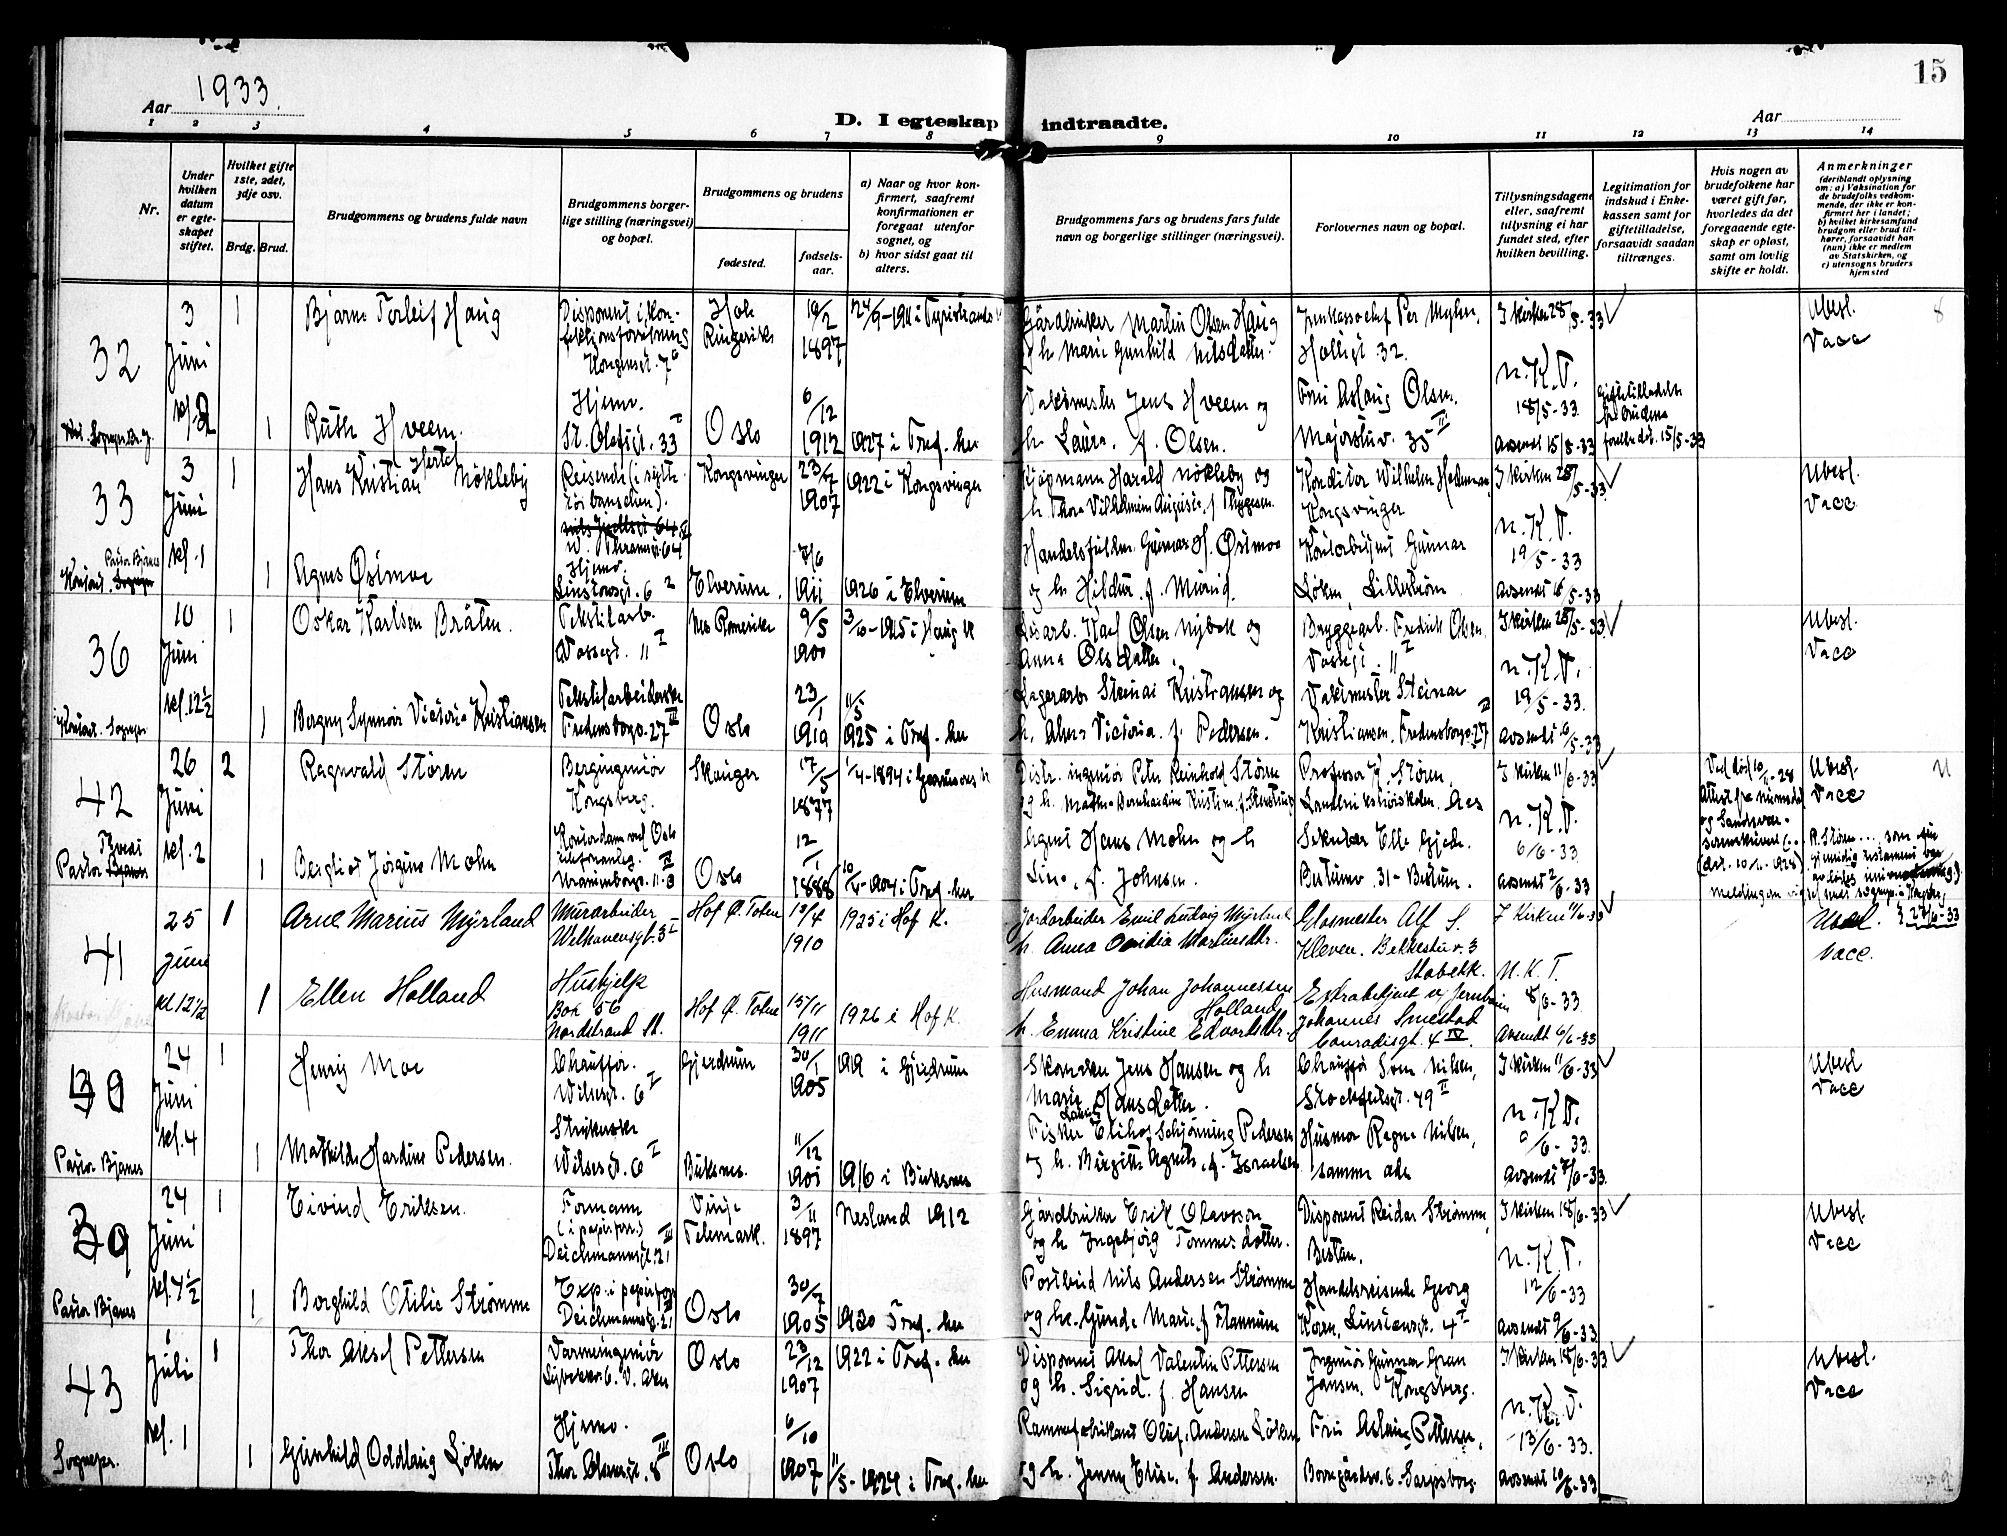 15
Aar 1933.
D. I egteskap indtraadte.
Aar
1 2 3 4 5 6 7 8 9 10 11 12 13 14
Nr.
Under hvilken datum er egteskapet stiftet.
Hvilket gifte 1ste, 2det, 3dje osv.
Brdg. Brud.
Brudgommens og brudens fulde navn
Brudgommens borgerlige stilling (næringsvei) og bopæl.
Brudgommens og brudens
fødested.
fødselsaar.
a) Naar og hvor konfirmert, saafremt konfirmationen er foregaat utenfor sognet, og
b) hvor sidst gaat til alters.
Brudgommens fars og brudens fars fulde navn og borgerlige stillinger (næringsvei).
Forlovernes navn og bopæl.
Tillysningsdagene eller, saafremt tillysning ei har fundet sted, efter hvilken bevilling.
Legitimation for indskud i Enkekassen samt for giftetilladelse, forsaavidt saadan tiltrænges.
Hvis nogen av brudefolkene har været gift før, hvorledes da det foregaaende egteskap er opløst, samt om lovlig skifte er holdt.
Anmerkninger (deriblandt oplysning om: a) Vaksination for de brudefolks vedkommende, der ikke er konfirmert her i landet; b) hvilket kirkesamfund brudgom eller brud tilhører, forsaavidt han (hun) ikke er medlem av Statskirken, og c) utensogns bruders hjemsted
32
3 Juni
1
Bjarne Torleif Haug
Disponent i konfektionsforretning
Kongensgt. 7
Hole Ringerike
16/2 1897
24/9-1911 i Tyristrand
Gårdbruker Martin Olsen Haug
og h. Marie Gunhild Nilsdatter.
Inkassochef Per Myhre,
Holtegt. 32.
I kirken 28/5-33
N.K.T.
18/5-33
avsendt 15/5-33
Ubesl.
Vacc
8
1
Ruth Hveem.
Hjemv.
St. Olafsgt. 33
Oslo
6/12 1912
1927 i Tref. her
Vaktmester Jens Hveem og
h. Laura f. Olsen.
Fru Aslaug Olsen.
Majorstuv. 35 III
33
3 Juni kl. 1
1
Hans Kristian Hertel Nökleby
Kongsvinger
23/7 1907
1922 i Kongsvinger
Kjøpmann Harald Nökleby og
h. Thora Vilhelmine Augusta f. Thygesen.
Konditor Wilhelm Hedemar,
Kongsvinger
I kirken 28/5-33
N.K.T.
19/5-33
avsendt 16/5-33
Ubesl.
Vacc
Pastor Bjønes
1
Agnes Østmoe
Hjemv.
Linstowsgt. 6 2
Elverum.
7/6 1911
1926 i Elverum
Handelsfullm. Gunnar H. Østmoe
og h. Hildur f. Mürid.
Kontorbetjent Gunnar
Løken, Lillestrøm
36
10 Juni kl. 12 1/2
1
Oskar Karlsen Bråten.
Tekstilarb.
Vossegt. 11 I
Nes Romerike
9/5 1900
3/10-1915 i Haug K
Løsarb. Karl Olsen Nybak og
Anna Olsdatter.
Bryggearb. Fredrik Olsen
Vossegt. 11 I
I kirken 28/5-33
N.K.T.
19/5-33.
avsendt 16/5-33
Ubesl.
Vacc
Konst. Sognepr
1
Bergny Synnøve Victoria Kristiansen
Tekstilarbeiderske
Fredensborgv. 27 III
Oslo
23/1 1910
11/5 1925 i Tref. her
Lagerarb. Steinar Kristiansen og
h. Alma Victoria f. Pedersen.
Vaktmester Steinar
Kristiansen. Fredensborgv. 27
42
26 Juni kl. 2
2
Ragnvald Støren
Bergingeniør
Kongsberg.
Skauger
17/5 1877
1/4-1894 i Garnisons K
Distr. ingeniør Peter Reinhold Støren
Professor K. Støren,
Landbrukshøiskolen. Aas
I kirken 11/6-33
N.K.T.
6/6-33
avsendt 2/6-33
Ubesl.
Vacc
Pastor
1
Bergliot Jørgine Mohn
Kontordame ved Oslo
telefonanleg.
Uranienborgv. 11 B
Oslo
12/1 1888
10/4-1904 i Tref. her
Agent Hans Mohn og h
Lina, f. Johnsen.
Sekretær Elle Gjede.
Bestumv. 31 - Bestum.
41
25 juni kl 12 1/2
1
Arne Marius Myrland
Murarbeider
Welhavensgt. 3 I
Hof Ø. Toten
13/4 1910
1925 i Hof K.
Jordarbeider Emil Ludvig Myrland
h. Anna Ovidia Martinusdtr.
Glasmester Alf S.
Kleven. Bekkestuv. 3
Stabekk.
I Kirken 11/6-33
N.K.T.
8/6-33
Avsendt 6/6-33
Ubesl.
Vacc.
1
Ellen Holland
Hushjelp
Box 56
Nordstrand St.
Hof Ø. Toten
15/11 1911
1926 i Hof K.
Husmand Johan Johannessen
Holland
h. Emma Kristine Edvardsdtr.
Ekstrabetjent v/ Jernbanen
Johannes Smestad
Conradisgt. 4 IV.
24 Juni kl. 4
1
Henry Moe
Chauffør.
Wilsesgt. 6 I
Gjerdrum
30/1 1905
1919 i Gjerdrum
Skomaker Jens Hansen og h
Marie Hansdatter.
Chauffør Sven Nilsen,
Stockfletsgt. 49 II
I kirken 11/6-33
N.K.T.
9/6-33.
avsendt 7/6-33
Ubesl
Vacc
Pastor Bjønes
1
Mathilde Hardine Pedersen.
Strykerske
Wilsesgt. 6 I
Buksnes.
11/12 1901
1916 i Buksnes
Fisker Elihas Schjønning Pedersen
og h. Birgitte Agnete, f. Israelsen
Husmor Ragna Nilsen,
samme ads
39
24 Juni kl. 4 1/2
1
Eivind Eriksen.
Formann
(i papirforr.)
Deichmannsgt. 21 III
Vinje Telemark.
3/11 1897
Nesland 1912
Gårdbruker Erik Olavsson
og h Ingebjørg Tommesdotter.
Disponent Reidar Strømme,
Bestun.
I kirken 18/6-33
N.K.T.
12/6-33
avsendt 9/6-33
Ubesl.
Vacc
Pastor Bjønes
1
Borghild Otilie Strømme
Exp. i papirforr
Deichmannsgt. 21
Oslo
30/7 1905
1920 Tref. her
Postbud Nils Andersen Strømme
og h. Gunda Marie, f. Flannum
Handelsreisende Georg
Koren, Linstowsgt. 4 I
43
1 Juli kl. 1
1
Thor Aksel Pettersen
Varmeingeniør
Oslo
23/12 1907
1922 i Tref. her
Disponent Aksel Valentin Pettersen
og h. Sigrid f. Hansen
Ingeniør Gunnar Gran
Jansen. Kongsberg.
I kirken 18/6-33
N.K.T.
13/6-33.
avsendt 10/6-33
Ubesl.
Vacc
Sognepr.
1
Gunhild Oddlaug Löken
Hjemv.
Thor Olsensgt. 8 III
Oslo
6/10 1907
11/5-1924 i Tref. her
Rammefabrikant Oluf Andersen Löken
og h. Jenny Elise f. Andersen.
Fru Aslaug Pettersen,
Borregårdsv. 6. Sarpsborg